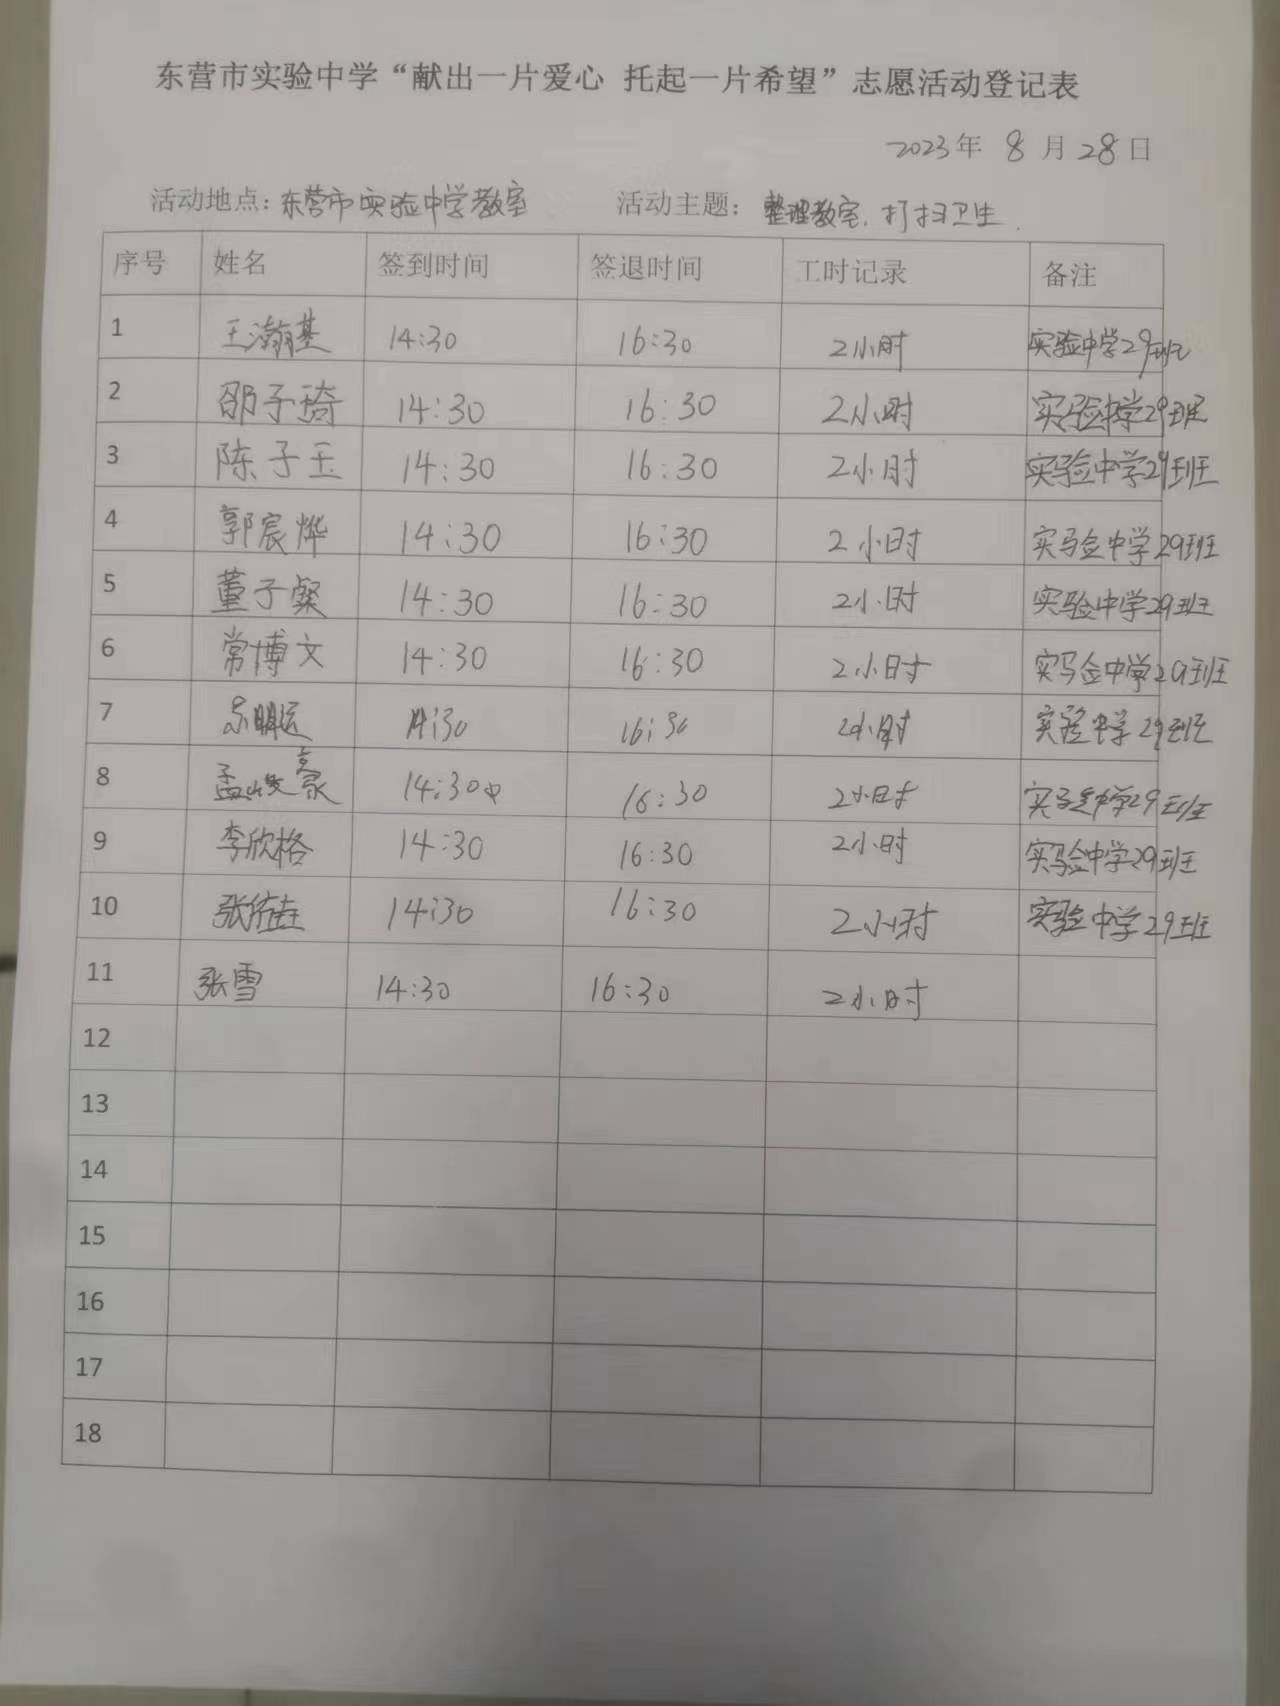 东营市实验中学“献出一片爱心 托起一片希望”志愿活动登记表
2023年 8 月 28 日
活动地点：东营市实验中学教室 活动主题：整理教室、打扫卫生.
序号 姓名 签到时间 签退时间 工时记录 备注
1 王瀚基 14:30 16:30 2小时 实验中学29班
2 邵子琦 14:30 16:30 2小时 实验中学29班
3 陈子玉 14:30 16:30 2小时 实验中学29班
4 郭宸烨 14:30 16:30 2小时 实验中学29班
5 董子粲 14:30 16:30 2小时 实验中学29班
6 常博文 14:30 16:30 2小时 实验中学29班
7 14:30 16:30 2小时 实验中学29班
8 孟峻豪 14:30 16:30 2小时 实验中学29班
9 李欣格 14:30 16:30 2小时 实验中学29班
10 14:30 16:30 2小时 实验中学29班
11 张雪 14:30 16:30 2小时
12
13
14
15
16
17
18